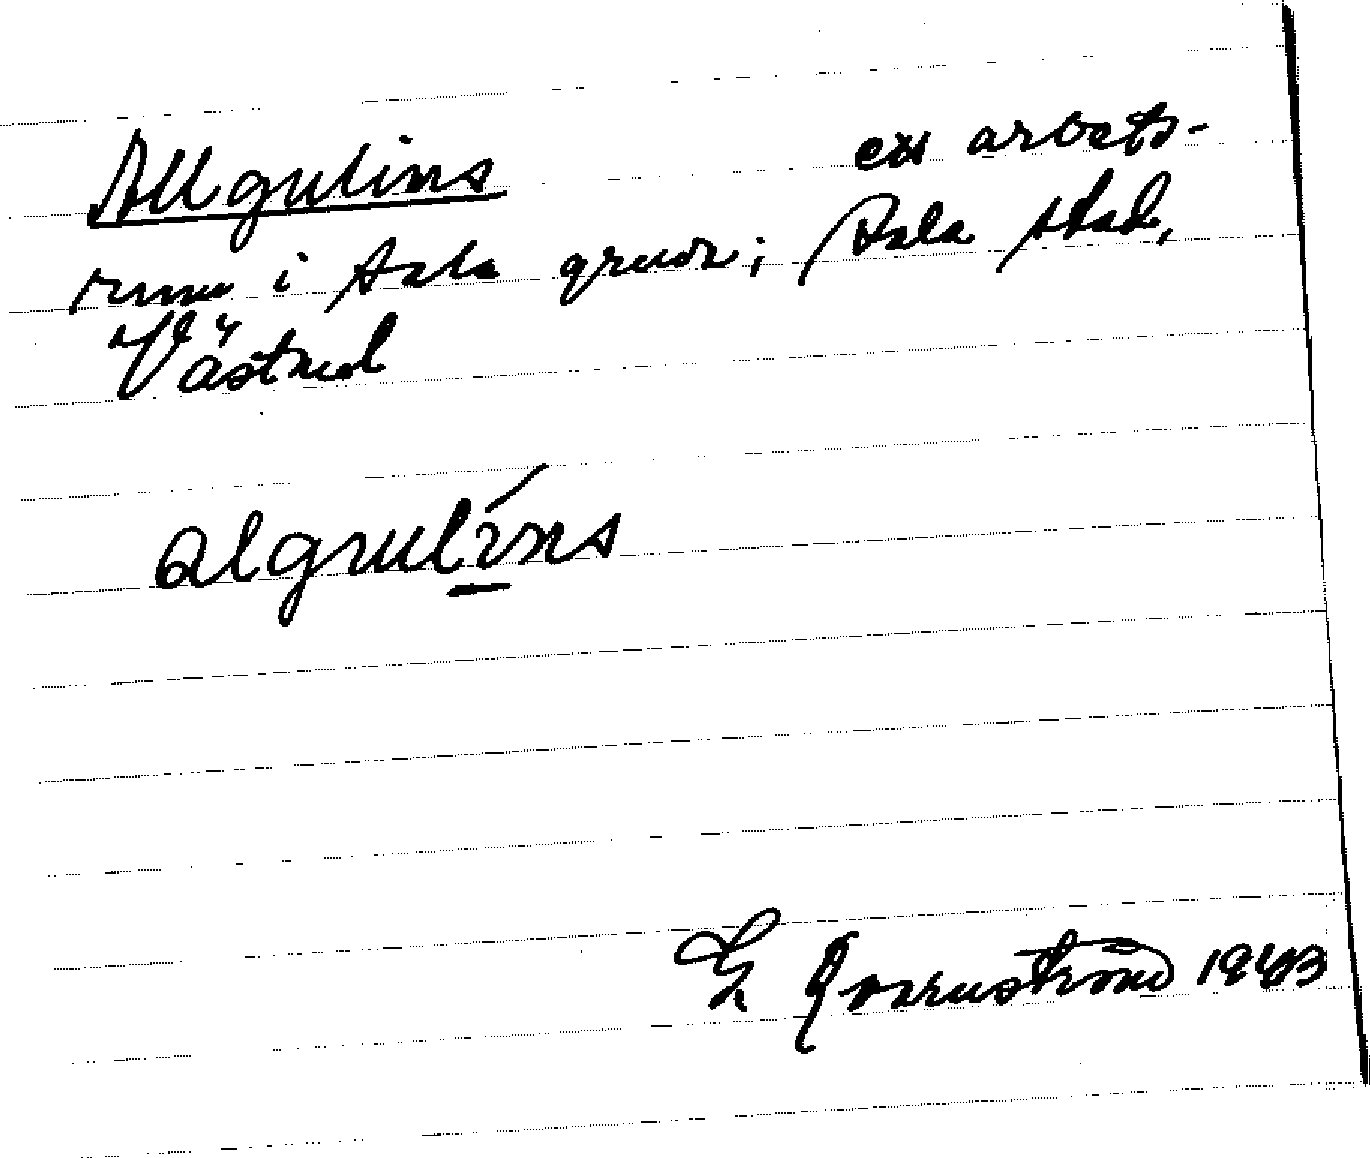 Allgulins ett arbets-
rum i Sala gruva; Sala stad,
Västml
algulíns
E Kvarnström 1943